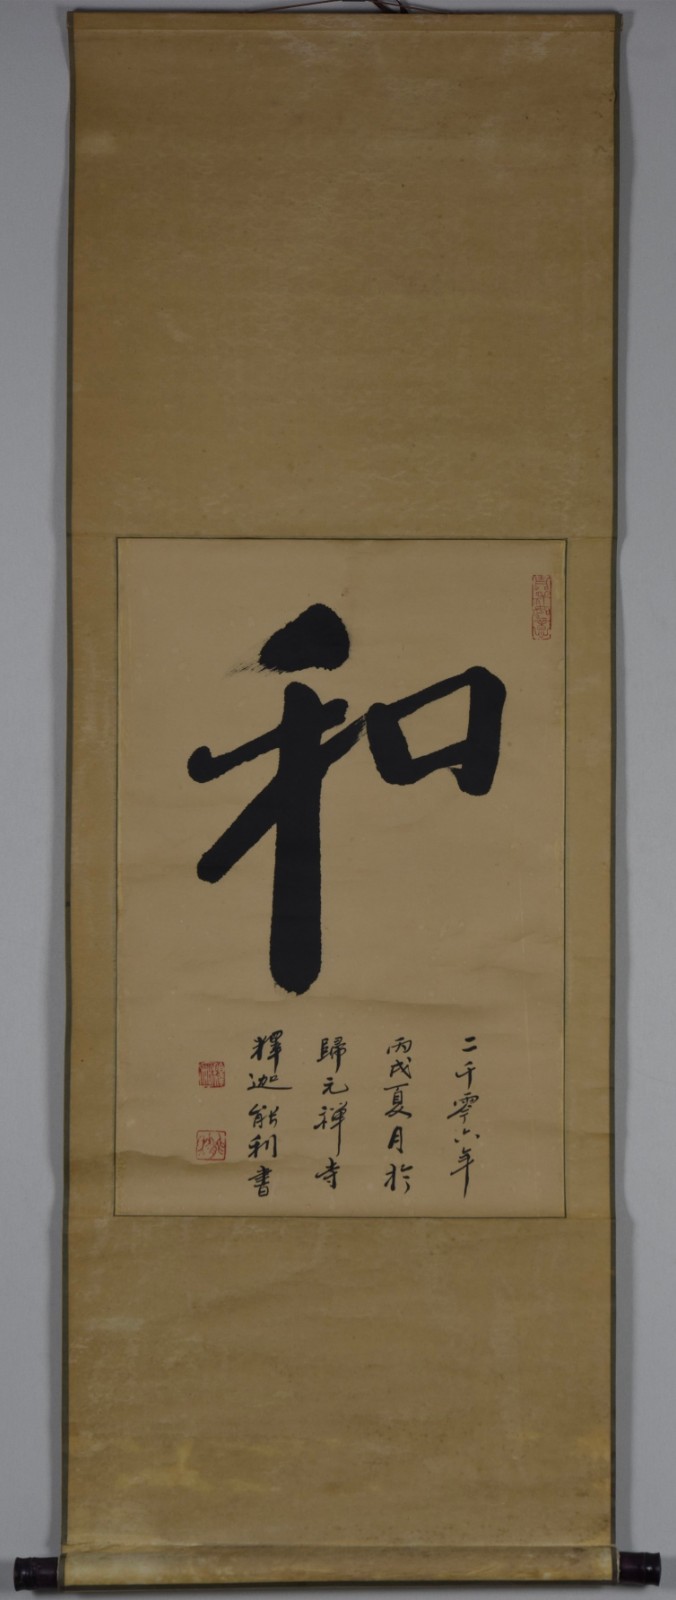 和
二千零六年
丙戌夏月於
歸元禅寺
釋迦能利書